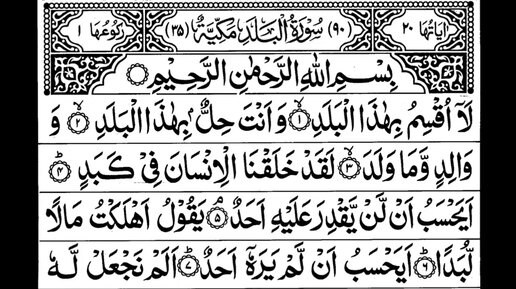 اٰيَاتُهَا ٢٠ (٩٠) سُوْرَةُ الْبَلَدِ مَكِّيَّةٌ (٣٥) رُكُوْعُهَا ١
بِسْمِ اللّٰهِ الرَّحْمٰنِ الرَّحِيْمِ
لَاۤ اُقْسِمُ بِهٰذَا الْبَلَدِ ۙ﴿١﴾ وَ اَنْتَ حِلٌّۢ بِهٰذَا الْبَلَدِ ۙ﴿٢﴾ وَ
وَالِدٍ وَّمَا وَلَدَ ۙ﴿٣﴾ لَقَدْ خَلَقْنَا الْاِنْسَانَ فِيْ كَبَدٍ ؕ﴿٤﴾
اَيَحْسَبُ اَنْ لَّنْ يَّقْدِرَ عَلَيْهِ اَحَدٌ ۘ﴿٥﴾ يَقُوْلُ اَهْلَكْتُ مَالًا
لُّبَدًا ؕ﴿٦﴾ اَيَحْسَبُ اَنْ لَّمْ يَرَهٗۤ اَحَدٌ ؕ﴿٧﴾ اَلَمْ نَجْعَلْ لَّهٗ